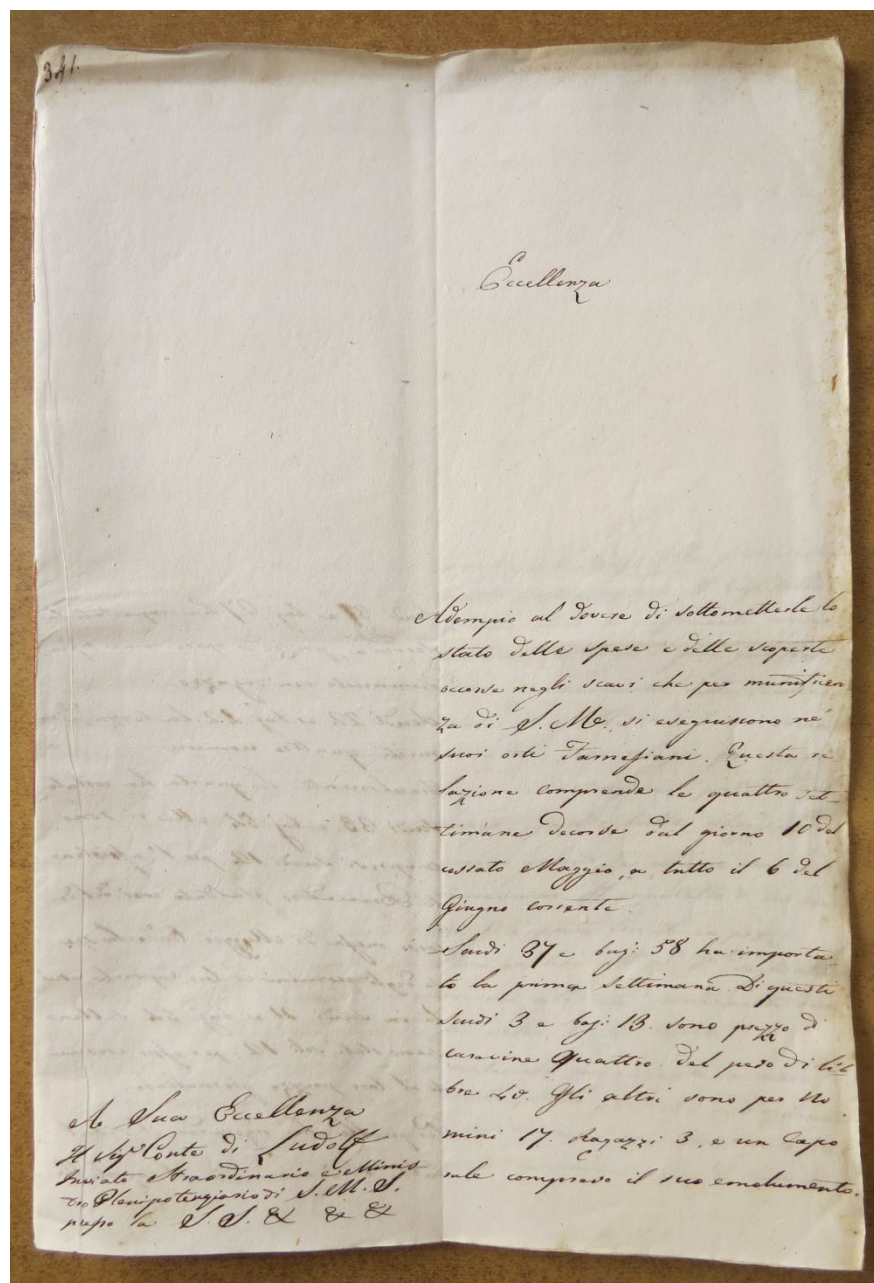 341.
Eccellenza
Adempio al dovere di sottometterle lo
stato delle spese e delle scoperte
occorse negli scavi che per munificen
za di S. M. si eseguiscono ne'
suoi orti Farnesiani. Questa re
lazione comprende le quattro set-
timane decorse dal giorno 10 del
cessato Maggio, a tutto il 6 del
Giugno corrente.
Scudi 37 e baj: 58 ha importa
to la prima settimana. Di questi
scudi 3 e baj: 13. sono prezzo di
carovine quattro del peso di lib
bre 40. Gli altri sono per Uo
mini 17. Ragazzi 3, e un Capo
rale compreso il suo emolumento.
A Sua Eccellenza
Il Sigr Conte di Ludolf
Inviato Straordinario e Minis-
tro Plenipotenziario di S. M. S.
presso la S. S. & & &